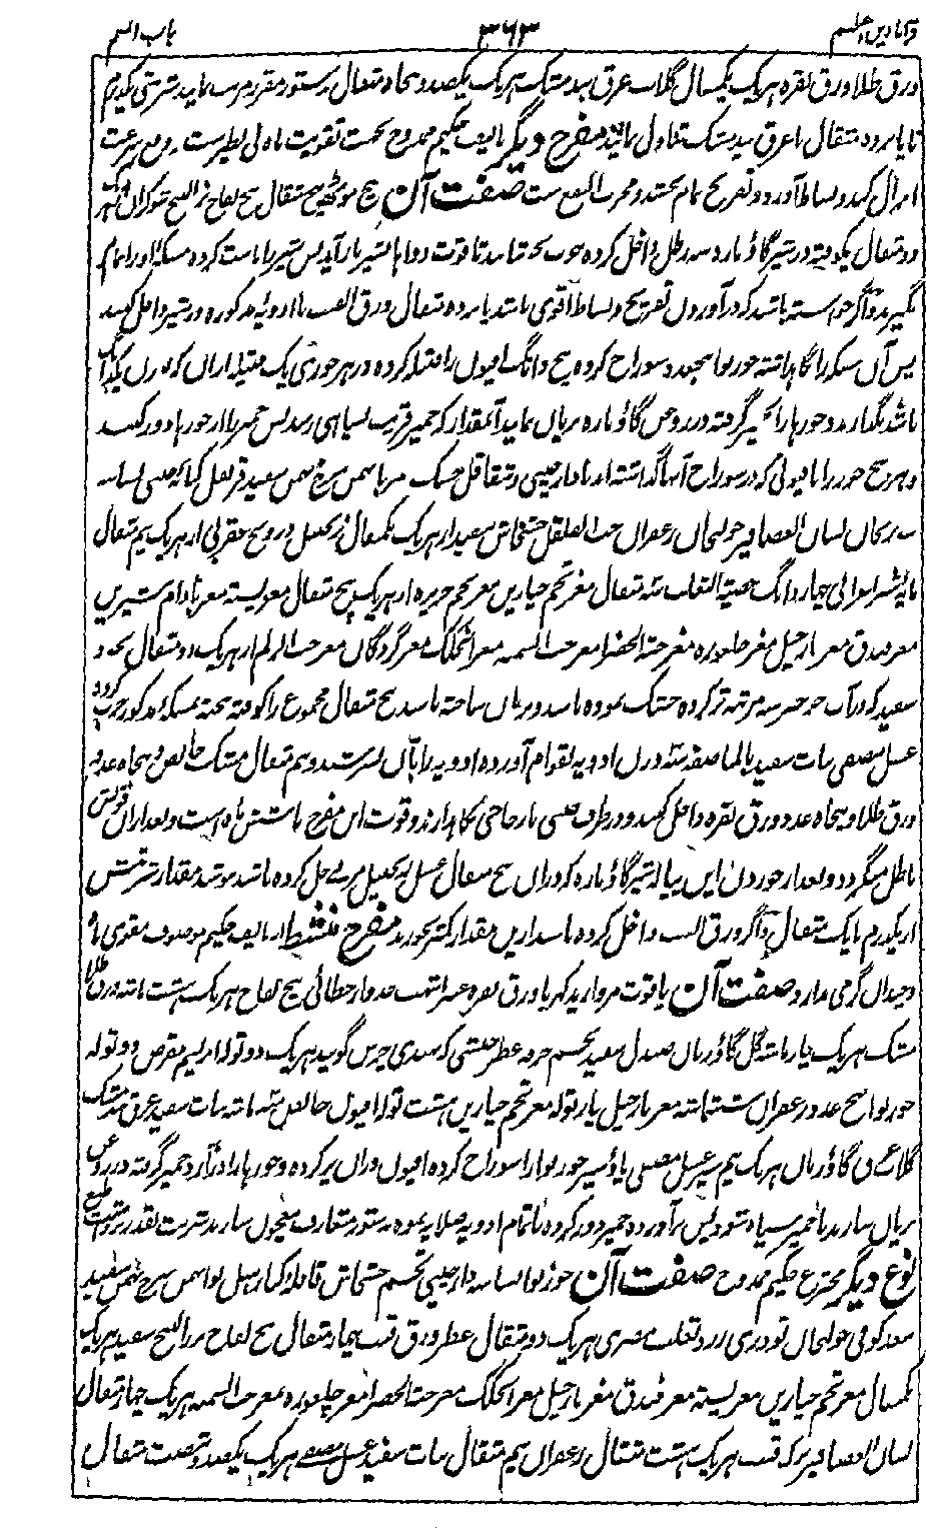 قرابادین اعظم ۳۶۳ باب المیم
ورق طلا ورق نقره هریک یکمثقال گلاب عرق بیدمشک هریک یکصد و پنجاه مثقال بدستور مقرر مرتب نمایند شربتی یکدرم
تا یا دو مثقال با عرق بیدمشک تناول نمایند مفرح دیگر تالیف حکیم ممدوح بجهت تقویت باه بی نظیرست
انزال کند و نشاط آورد و تفریح تمام بخشد و مجرب النفع ست صفت آن مثقال بیخ لفاح بزر البنج شوکران
دو مثقال نیکوفته در شیر گاو تازه سه رطل داخل کرده تا قوت دواها بشیر باز آید پس شیر را ماست کرده مسکه او را تمام
بگیرند و اگر خواسته باشد که در آوردن تفریح و نشاط اقوی باشد پانزده مثقال ورق القنب با ادویه مذکوره در شیر داخل کنند
پس آن مسکه را نگاهداشته جوز بوا پنجعدد سوراخ کرده پنج دانگ افیون را فتیله کرده در هر جوزی یک فتیله ازان که وزن یکدانگ
باشد بگذارند و جوزها را خمیر گرفته در روغن گاو تازه بریان نمایند آنمقدار که خمیر قریب بسیاهی رسد پس خمیر را از جوزها دور کنند
و هر پنج جوز را با افیونی که در سوراخ آنها گذاشته اند با دارچینی شقاقل خشک بهمن سرخ بهمن سفید قرنفل کبابه چینی بسباسه
لسان العصافیر خولنجان زعفران حب الفلفل خشخاش سفید از هریک یکمثقال زنجبیل درونج عقربی از هریک نیم مثقال
مایه شتر اعرابی چهار دانگ خصیة الثعلب سه مثقال مغز تخم خیارین مغز تخم خربزه از هریک پنج مثقال مغز پسته مغز بادام شیرین
مغز فندق مغز نارجیل مغز چلغوزه مغز حبة الخضرا مغز حب السمنه مغز انجکک مغز گردگان مغز حب الزلم از هریک دو مثقال نخود
سفید که در آب جرجیر سه مرتبه تر کرده خشک نموده باشند و بریان ساخته باشند پنج مثقال مجموع را کوفته بیخته بمسکه مذکور چرب کرده
عسل مصفی نبات سفید بالمناصفه سه وزن ادویه بقوام آورده ادویه را بآن بسرشند و نیم مثقال مشک خالص و پنجاه عدد
ورق طلا و پنجاه عدد ورق نقره داخل کنند و در ظرف چینی یا زجاجی نگاهدارند و قوت این مفرح تا شش ماه است و بعد ازان قوتش
باطل میگردد و بعد از خوردن این پیاله شیر گاو تازه که دران پنج مثقال عسل زنجبیل مربی حل کرده باشند بنوشد مقدار شربتش
از یکدرم تا یک مثقال و اگر ورق القنب داخل کرده باشند ازین مقدار کمتر بخورند مفرح منشط از تالیف حکیم موصوف مقوی باه
و چندان گرمی ندارد صفت آن یاقوت مروارید کهربا ورق نقره عنبر اشهب جدوار خطائی بیخ لفاح هریک هشت ماشه ورق طلا
مشک هریک چهار ماشه گل گاوزبان صندل سفید تخم خرفه که بهندی چرس گویند هریک دو توله ابریشم مقرض دو توله
جوز بوا پنج عدد زعفران شش ماشه مغز نارجیل چهار توله مغز تخم خیارین هشت توله افیون خالص ماشه نبات سفید عرق بیدمشک
گلاب عرق گاوزبان هریک نیم سیر عسل مصفی پاؤ سیر جوز بوا را سوراخ کرده افیون دران پر کرده و جوزها را در آرد خمیر گرفته در روغن
بریان سازند تا خمیر سیاه شود پس برآورده خمیر دور کرده با تمام ادویه صلایه نموده بدستور متعارف معجون سازند شربت بقدر برداشت طبع
نوع دیگر مخترع حکیم ممدوح صفت آن جوز بوا بسباسه دارچینی تخم خشخاش قاقله کبار هیل بوا بهمن سرخ بهمن سفید
سعد کوفی خولنجان تودری زرد ثعلب مصری هریک دو مثقال عطر ورق قنب چهار مثقال بیخ لفاح بزر البنج سفید هریک
یکمثقال مغز تخم خیارین مغز پسته مغز فندق مغز نارجیل مغز انجکک مغز حبة الخضرا مغز چلغوزه مغز حب السمنه هریک چهار مثقال
لسان العصافیر برگ قنب هریک هشت مثقال زعفران نیم مثقال نبات سفید عسل مصفی هریک یکصد و شصت مثقال